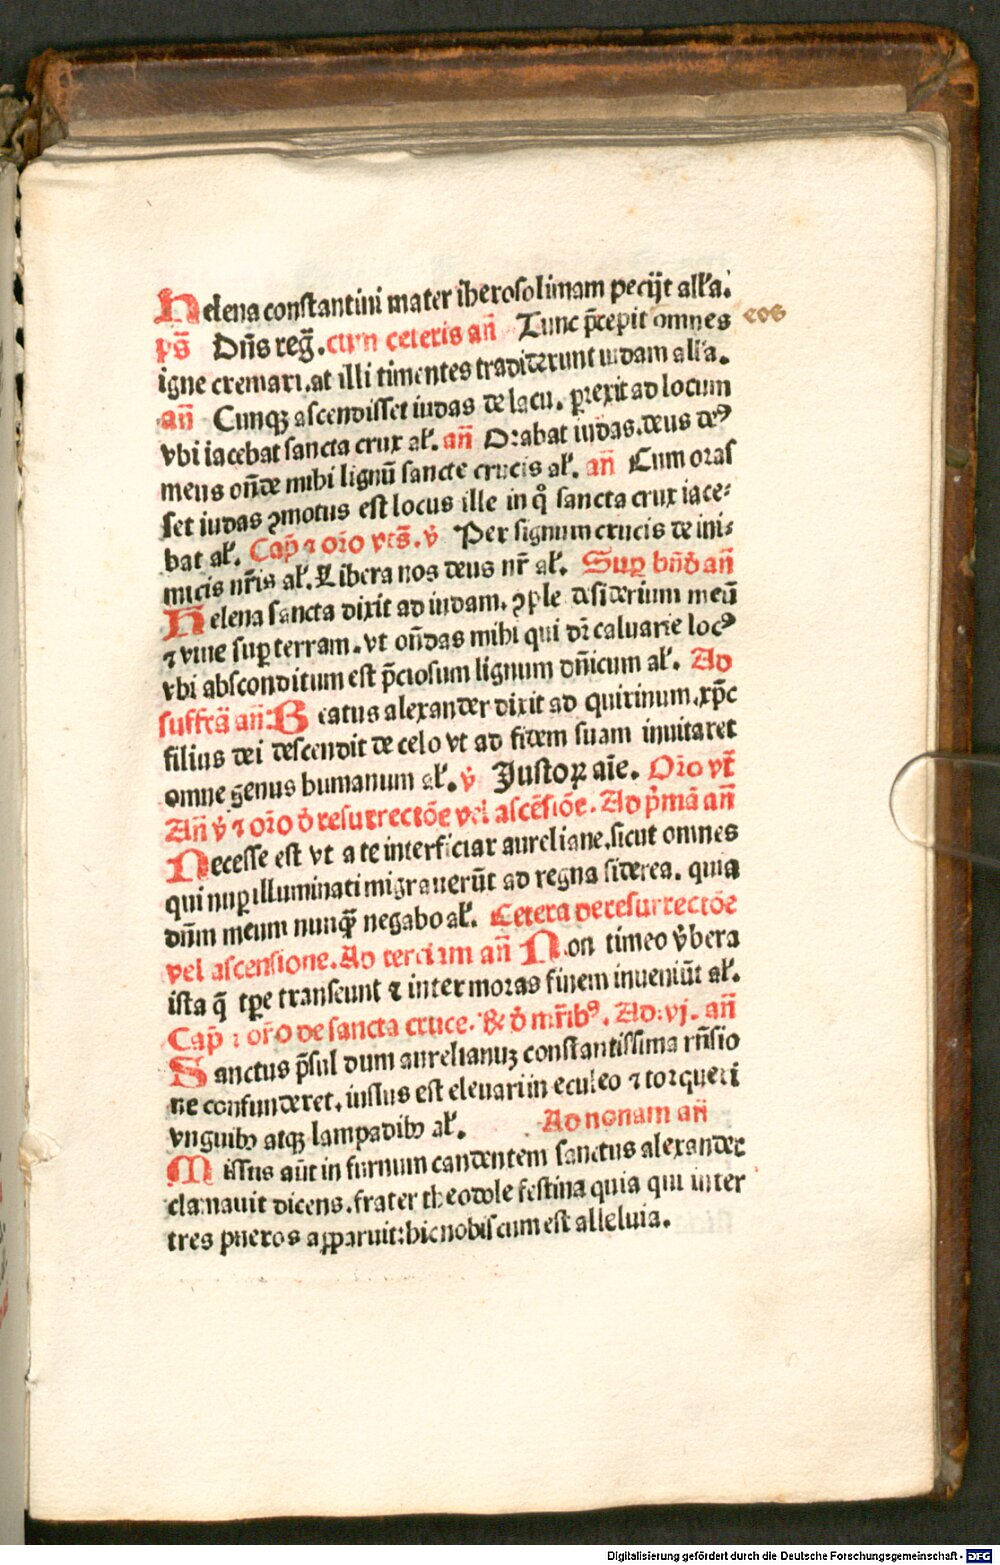 Helena constantini mater iherosolimam pecijt all'a.
ps̄ Dn̄s reḡ. cum ceteris an̄ Tunc p̄cepit omnes eos
igne cremari. at illi timentes tradiderunt iudam all'a.
an̄ Cunqꝫ ascendisset iudas de lacu. ꝑrexit ad locum
vbi iacebat sancta crux al'. an̄ Orabat iudas. deus deꝰ
meus on̄de mihi lignū sancte crucis al'. an̄ Cum oras
set iudas ꝯmotus est locus ille in qͦ sancta crux iace⸗
bat al'. Cap̄ ⁊ or̄o vts̄. v̄ Per signum crucis de ini⸗
micis nr̄is al'. Libera nos deus nr̄ al'. Suꝑ bn̄d an̄
Helena sancta dixit ad iudam. ꝯple desiderium meū
⁊ viue suꝑ terram. vt on̄das mihi qui dr̄ caluarie locꝰ
vbi absconditum est p̄ciosum lignum dn̄icum al'. Ad
suffrā an̄: Beatus alexander dixit ad quirinum. xp̄c
filius dei descendit de celo vt ad fidem suam inuitaret
omne genus humanum al'. v̄ Justoꝝ aīe. Or̄o vt̄
An̄ v̄ ⁊ or̄o d̄ resurrectōe vel ascēsiōe. Ad p̄mā an̄
Necesse est vt a te interficiar aureliane. sicut omnes
qui nuꝑ illuminati migrauerūt ad regna siderea. quia
dn̄m meum nunqꝫ negabo al'. Cetera de resurrectōe
vel ascensione. Ad terciam an̄ Non timeo v̄bera
ista q̄ tꝑe transeunt ⁊ inter moras finem inueniūt al'.
Cap̄ ⁊ or̄o de sancta cruce. & d̄ mr̄ibꝰ. Ad. vj. an̄
Sanctus p̄sul dum aurelianuꝫ constantissima rn̄sio
ne confunderet. iussus est eleuari in eculeo ⁊ torqueri
vnguibꝫ atqꝫ lampadibꝫ al'. Ad nonam an̄
Missus aūt in furnum candentem sanctus alexander
clamauit dicens. frater theodole festina quia qui inter
tres pueros apparuit: hic nobiscum est alleluia.
Digitalisierung gefördert durch die Deutsche Forschungsgemeinschaft - DFG